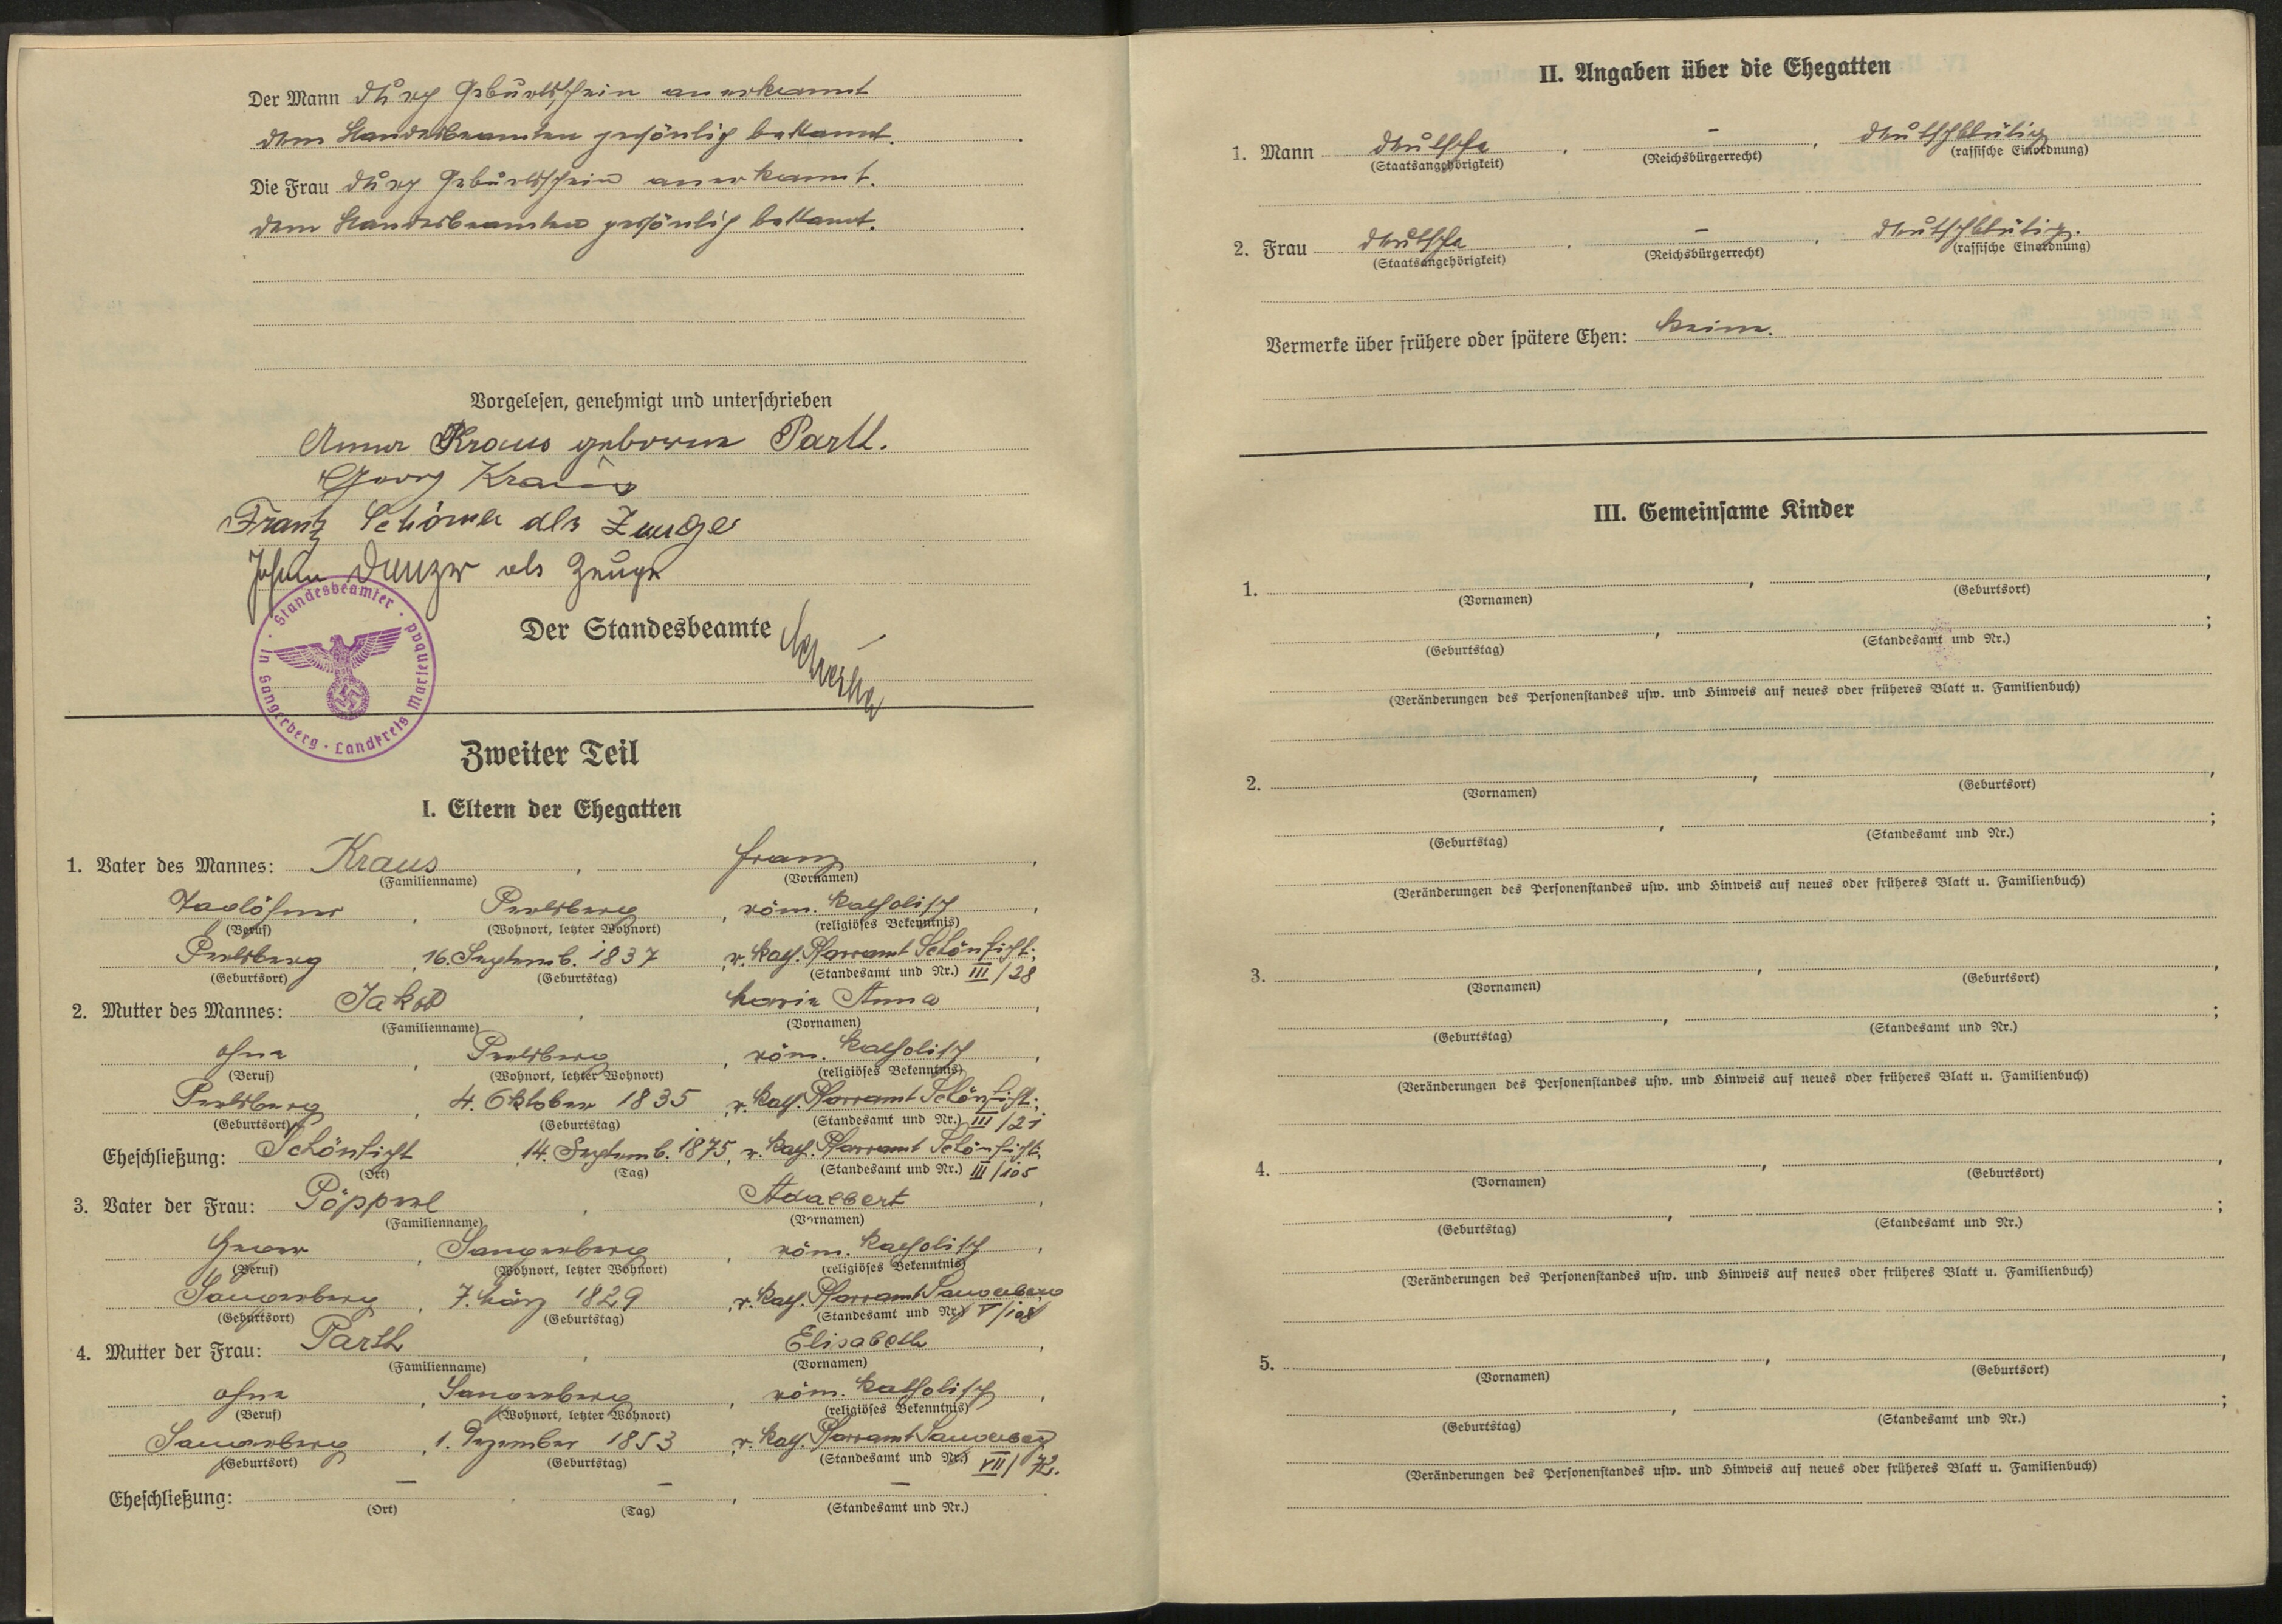 Der Mann durch Geburtsschein anerkannt
dem Standesbeamten persönlich bekannt.
Die Frau durch Geburtsschein anerkannt.
dem Standesbeamten persönlich bekannt.
Vorgelesen, genehmigt und unterschrieben
Anna Kraus geborene Partl.
Georg Kraus
Frantz Schöner als Zeuge
Johann Danzer als Zeuge
Der Standesbeamte
Standesbeamter · in Sangerberg · Landkreis Marienbad ·
Zweiter Teil
I. Eltern der Ehegatten
1. Vater des Mannes: Kraus, Franz,
(Familienname) (Vornamen)
Taglöhner, Perlsberg, röm. katholisch,
(Beruf) (Wohnort, letzter Wohnort) (religiöses Bekenntnis)
Perlsberg, 16. Septemb. 1837, r. kath. Pfarramt Schönficht;
(Geburtsort) (Geburtstag) (Standesamt und Nr.) III/28
2. Mutter des Mannes: Jakob, Maria Anna,
(Familienname) (Vornamen)
ohne, Perlsberg, röm. katholisch,
(Beruf) (Wohnort, letzter Wohnort) (religiöses Bekenntnis)
Perlsberg, 4. Oktober 1835, r. kath. Pfarramt Schönficht;
(Geburtsort) (Geburtstag) (Standesamt und Nr.) III/21
Eheschließung: Schönficht, 14. Septemb. 1875, r. kath. Pfarramt Schönficht.
(Ort) (Tag) (Standesamt und Nr.) III/105
3. Vater der Frau: Pöpperl, Adalbert,
(Familienname) (Vornamen)
Sangerberg, röm. katholisch,
(Beruf) (Wohnort, letzter Wohnort) (religiöses Bekenntnis)
Sangerberg, 7. März 1829, r. kath. Pfarramt Sangerberg
(Geburtsort) (Geburtstag) (Standesamt und Nr.) V/108
4. Mutter der Frau: Partl, Elisabeth,
(Familienname) (Vornamen)
ohne, Sangerberg, röm. katholisch,
(Beruf) (Wohnort, letzter Wohnort) (religiöses Bekenntnis)
Sangerberg, 1. Dezember 1853, r. kath. Pfarramt Sangerberg
(Geburtsort) (Geburtstag) (Standesamt und Nr.) VII/72.
Eheschließung: –, –, –.
(Ort) (Tag) (Standesamt und Nr.)
II. Angaben über die Ehegatten
1. Mann deutsche, –, deutschblütig
(Staatsangehörigkeit) (Reichsbürgerrecht) (rassische Einordnung)
2. Frau deutsche, –, deutschblütig.
(Staatsangehörigkeit) (Reichsbürgerrecht) (rassische Einordnung)
Vermerke über frühere oder spätere Ehen: keine.
III. Gemeinsame Kinder
1. , ,
(Vornamen) (Geburtsort)
, ;
(Geburtstag) (Standesamt und Nr.)
(Veränderungen des Personenstandes usw. und Hinweis auf neues oder früheres Blatt u. Familienbuch)
2. , ,
(Vornamen) (Geburtsort)
, ;
(Geburtstag) (Standesamt und Nr.)
(Veränderungen des Personenstandes usw. und Hinweis auf neues oder früheres Blatt u. Familienbuch)
3. , ,
(Vornamen) (Geburtsort)
, ;
(Geburtstag) (Standesamt und Nr.)
(Veränderungen des Personenstandes usw. und Hinweis auf neues oder früheres Blatt u. Familienbuch)
4. , ,
(Vornamen) (Geburtsort)
, ;
(Geburtstag) (Standesamt und Nr.)
(Veränderungen des Personenstandes usw. und Hinweis auf neues oder früheres Blatt u. Familienbuch)
5. , ,
(Vornamen) (Geburtsort)
, ;
(Geburtstag) (Standesamt und Nr.)
(Veränderungen des Personenstandes usw. und Hinweis auf neues oder früheres Blatt u. Familienbuch)